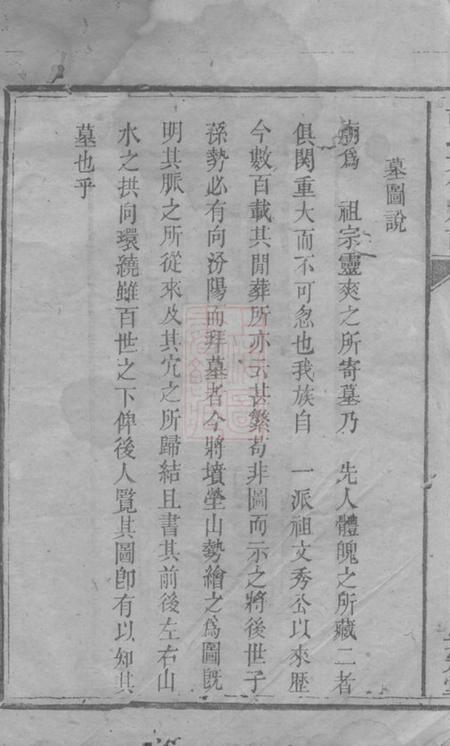 墓圖說
廟爲　祖宗靈爽之所寄墓乃　先人體魄之所藏二者
俱関重大而不可忽也我族自　一派祖文秀公以來歷
今數百載其間葬所亦云甚繁茍非圖而示之將後世子
孫勢必有向汾陽而拜墓者今將墳塋山勢繪之爲圖旣
明其脈之所從來及其穴之所歸結且書其前後左右山
水之拱向環繞雖百世之下俾後人覽其圖卽有以知其
墓也乎